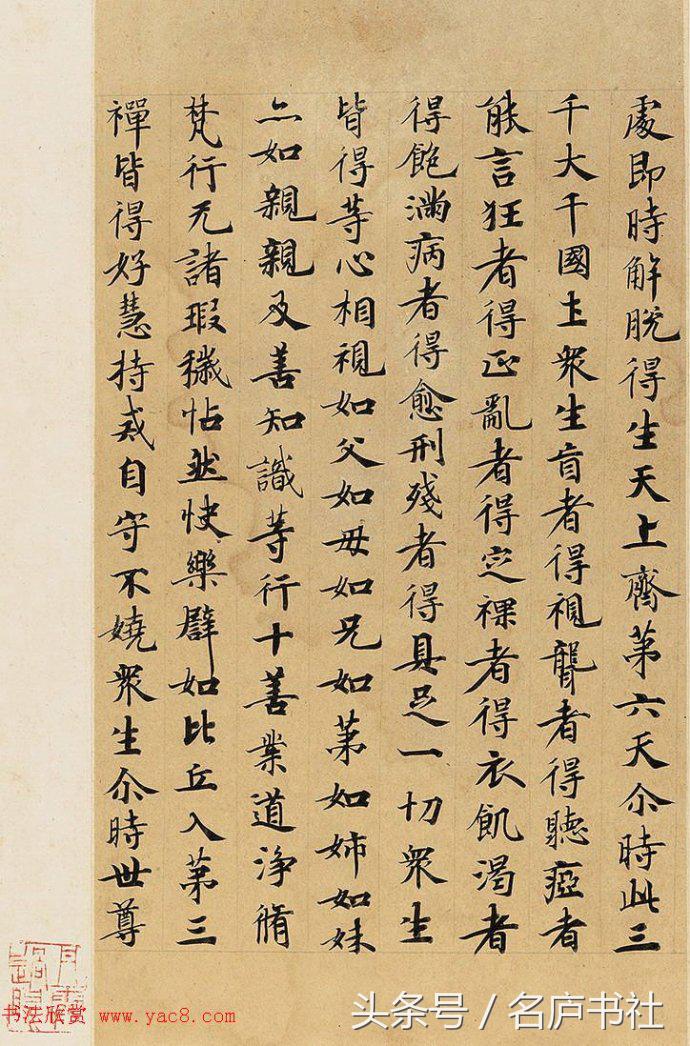 處即時解脫得生天上齊第六天尒時此三
千大千國土眾生盲者得視聾者得聽瘂者
能言狂者得正亂者得定裸者得衣飢渴者
得飽滿病者得愈刑殘者得具足一切眾生
皆得等心相視如父如母如兄如弟如姊如妹
亦如親親及善知識等行十善業道淨脩
梵行无諸瑕穢怗然快樂譬如比丘入第三
禪皆得好慧持戒自守不嬈眾生尒時世尊
书法欣赏 www.yac8.com
头条号 / 名庐书社